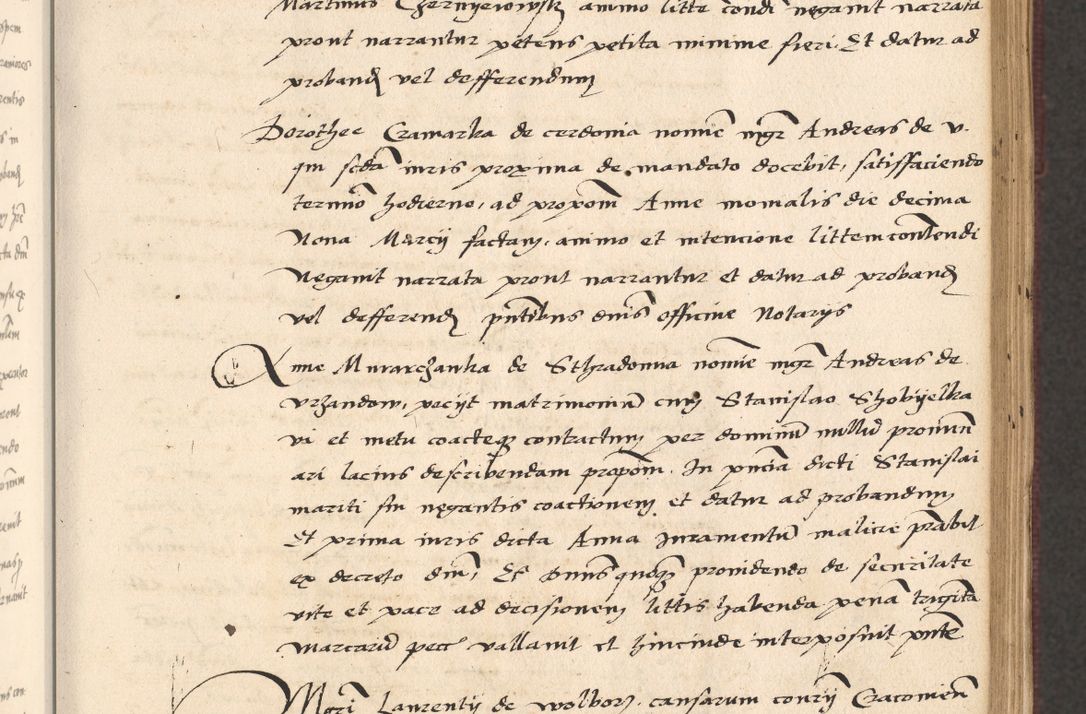 Martinus Czernyeiowsky animo litte condi negauit narrata
prout narrantur petens petita minime fieri. Et datur ad
proband vel defferendum
Dorothee Cramarka de cerdonia nomie mgr Andreas de v.
qm scda iuris proxima de mandato docebit, satisfaciendo
termio hodierno, ad propom Anne monialis die decima
Nona Marcij factam, animo et intencione littem contendi
Negauit narrata prout narrantur et datur ad proband
vel defferend pntibus dnis officine Notarijs
Anne Murarczanka de Sthradomia nomie mgr Andreas de
vrzandow, pecijt matrimoniu cum Stanislao Skobyelka
vi et metu coacteq contractum per dominu nullu pronun
ari lacius describendam propom. In pncia dicti Stanislai
mariti sui negantis coactionem et datur ad probandum
Et prima iuris dicta Anna Juramentu malicie prabit
ex decreto dni, Et dnus quoq prouidendo de securitate
vite et pace ad decisionem littis habenda pena triginta
marcaru pecc vallauit et hincinde interposuit pnte
Mgri Laurentij de wolborz, causarum consrij Cracouien